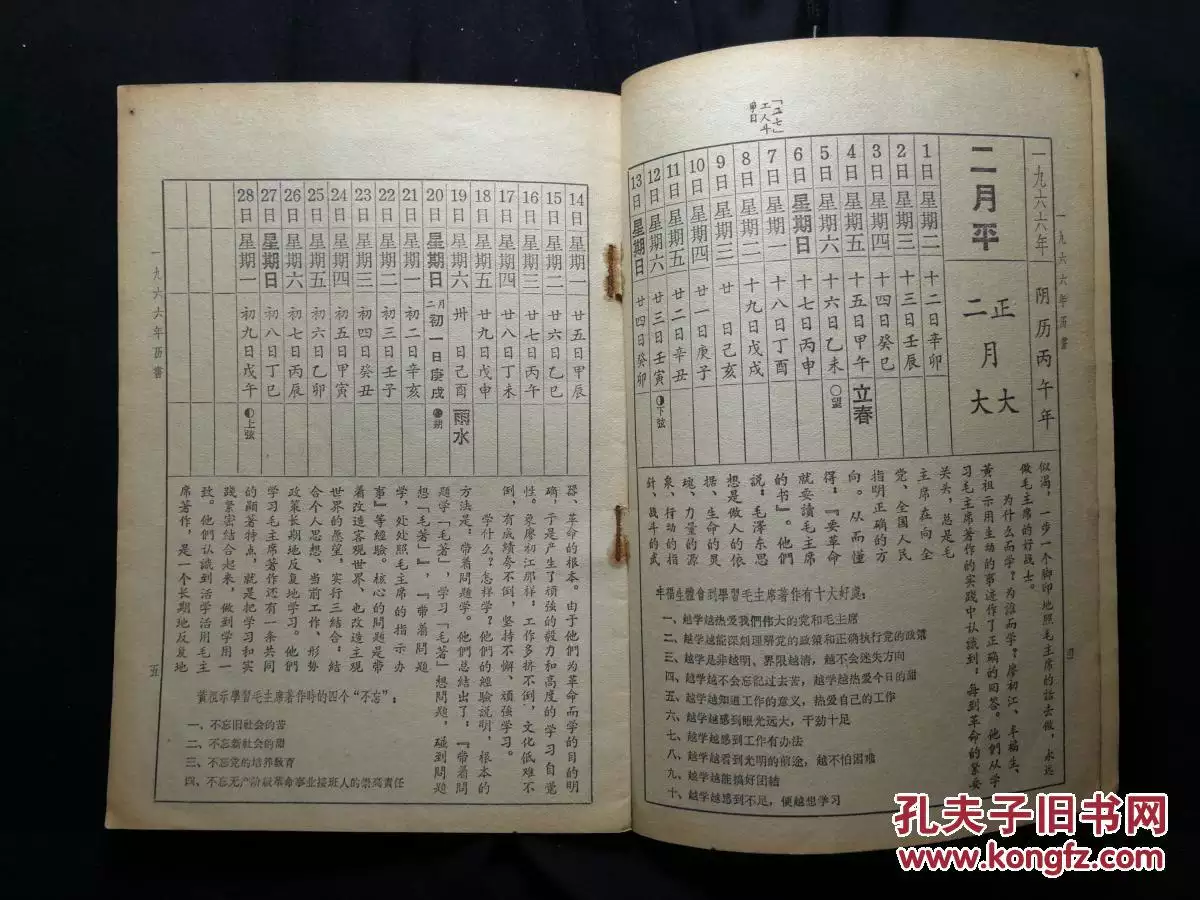 一九六六年历書
「二七」
工人斗
爭日
一九六六年 阴历丙午年
二月平
正月大
二月大
1日 星期二 十二日辛卯
2日 星期三 十三日壬辰
3日 星期四 十四日癸巳
4日 星期五 十五日甲午 立春
5日 星期六 十六日乙未 ○望
6日 星期日 十七日丙申
7日 星期一 十八日丁酉
8日 星期二 十九日戊戌
9日 星期三 二十日己亥
10日 星期四 廿一日庚子
11日 星期五 廿二日辛丑
12日 星期六 廿三日壬寅 下弦
13日 星期日 廿四日癸卯
似渴，一步一个脚印地照毛主席的話去做，永远
做毛主席的好战士。
为什么而学？为誰而学？廖初江、丰福生、
黄祖示用生动的事迹作了正确的回答。他們从学
习毛主席著作的实践中认識到：每到革命的紧要
关头，总是毛
主席在向全
党、全国人民
指明正确的方
向。从而懂
得：“要革命
就要讀毛主席
的书”。他們
説：毛澤东思
想是做人的依
据、生命的灵
魂、力量的源
泉、行动的指
針、战斗的武
丰福生體會到學習毛主席著作有十大好處：
一、越学越热爱我們伟大的党和毛主席
二、越学越能深刻理解党的政策和正确执行党的政策
三、越学是非越明、界限越清，越不会迷失方向
四、越学越不会忘記过去苦，越学越热爱今日的甜
五、越学越知道工作的意义，热爱自己的工作
六、越学越感到眼光远大，干劲十足
七、越学越感到工作有办法
八、越学越看到光明的前途，越不怕困难
九、越学越能搞好团結
十、越学越感到不足，便越想学习
四
14日 星期一 廿五日甲辰
15日 星期二 廿六日乙巳
16日 星期三 廿七日丙午
17日 星期四 廿八日丁未
18日 星期五 廿九日戊申
19日 星期六 卅日己酉 雨水
20日 星期日 二月初一日庚戌 ●朔
21日 星期一 初二日辛亥
22日 星期二 初三日壬子
23日 星期三 初四日癸丑
24日 星期四 初五日甲寅
25日 星期五 初六日乙卯
26日 星期六 初七日丙辰
27日 星期日 初八日丁巳
28日 星期一 初九日戊午 上弦
器、革命的根本。由于他們为革命而学的目的明
确，于是产生了頑强的毅力和高度的学习自觉
性。象廖初江那样，工作多挤不倒，文化低难不
倒，有成績夸不倒，坚持不懈、頑强学习。
学什么？怎样学？他們的經驗説明，根本的
方法是：带着問題学。他們总結出了：“带着問
題学‘毛著’，学习‘毛著’想問題，碰到問題
想‘毛著’”，“带着問題
学，处处照毛主席的指示办
事”等經驗。核心的問題是带
着改造客观世界、也改造主观
世界的愿望，实行三結合：結
合个人思想、当前工作、形势
政策长期地反复地学习。他們
学习毛主席著作还有一条共同
的顯著特点，就是把学习和实
踐緊密結合起来，做到学用一
致。他們认識到活学活用毛主
席著作，是一个长期地反复地
黄祖示學習毛主席著作時的四个“不忘”：
一、不忘旧社会的苦
二、不忘新社会的甜
三、不忘党的培养教育
四、不忘无产阶級革命事业接班人的崇高責任
一九六六年历書
五
孔夫子旧书网
www.kongfz.com